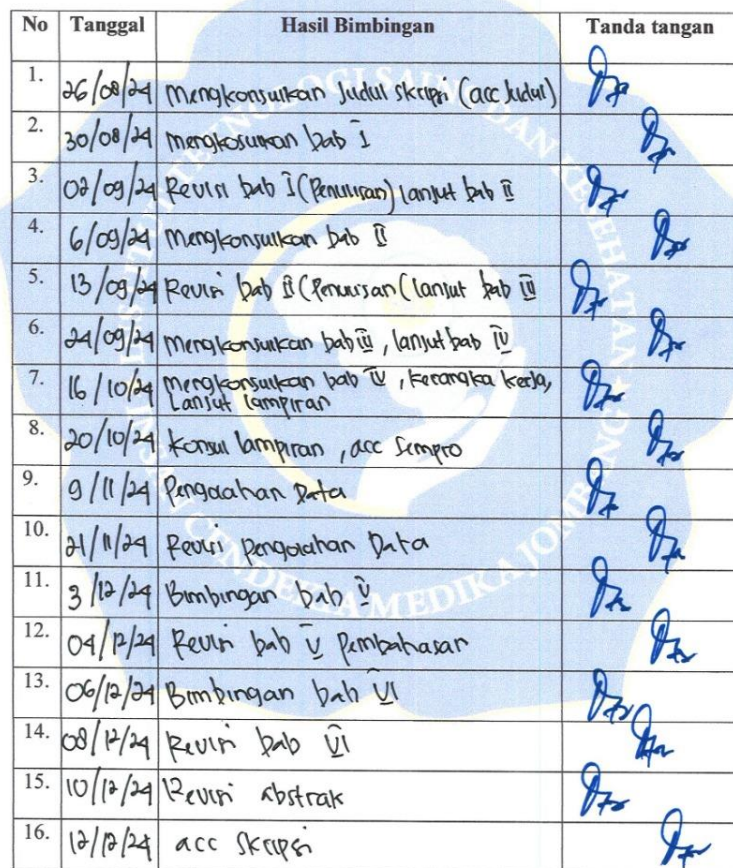 No Tanggal Hasil Bimbingan Tanda tangan
1. 26/08/24 Mengkonsulkan Judul skripsi (acc Judul)
2. 30/08/24 mengkosulkan bab I
3. 02/09/24 Revisi bab I (Penulisan) lanjut bab II
4. 6/09/24 Mengkonsulkan bab II
5. 13/09/24 Revisi bab II (Penulisan (lanjut bab III
6. 24/09/24 Mengkonsulkan bab III, lanjut bab IV
7. 16/10/24 Mengkonsulkan bab IV, kerangka kerja,
Lanjut lampiran
8. 20/10/24 Konsul lampiran, acc Sempro
9. 9/11/24 Pengolahan Data
10. 21/11/24 Revisi Pengolahan Data
11. 3/12/24 Bimbingan bab V
12. 04/12/24 Revisi bab V Pembahasan
13. 06/12/24 Bimbingan bab VI
14. 08/12/24 Revisi bab VI
15. 10/12/24 Revisi abstrak
16. 12/12/24 acc Skripsi